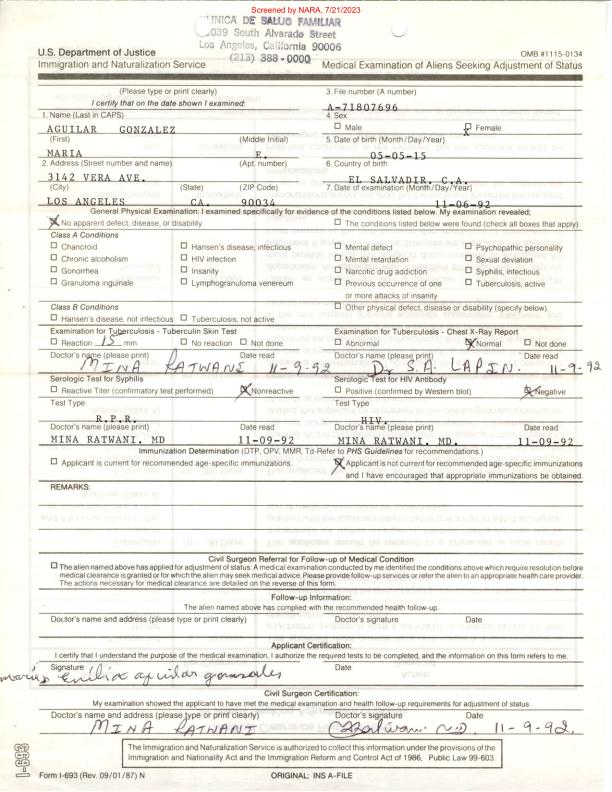 Screened by NARA, 7/21/2023
CLINICA DE SALUD FAMILIAR
2039 South Alvarado Street
Los Angeles, California 90006
(213) 388-0000
U.S. Department of Justice
OMB #1115-0134
Immigration and Naturalization Service
Medical Examination of Aliens Seeking Adjustment of Status
(Please type or print clearly)
I certify that on the date shown I examined:
3. File number (A number)
A-71807696
1. Name (Last in CAPS)
AGUILAR GONZALEZ
4. Sex
☐ Male ☒ Female
(First) (Middle Initial)
MARIA E.
5. Date of birth (Month/Day/Year)
05-05-15
2. Address (Street number and name) (Apt. number)
3142 VERA AVE.
6. Country of birth
EL SALVADIR, C.A.
(City) (State) (ZIP Code)
LOS ANGELES CA. 90034
7. Date of examination (Month/Day/Year)
11-06-92
General Physical Examination: I examined specifically for evidence of the conditions listed below. My examination revealed;
☒ No apparent defect, disease, or disability. ☐ The conditions listed below were found (check all boxes that apply).
Class A Conditions
☐ Chancroid ☐ Hansen's disease, infectious ☐ Mental defect ☐ Psychopathic personality
☐ Chronic alcoholism ☐ HIV infection ☐ Mental retardation ☐ Sexual deviation
☐ Gonorrhea ☐ Insanity ☐ Narcotic drug addiction ☐ Syphilis, infectious
☐ Granuloma inguinale ☐ Lymphogranuloma venereum ☐ Previous occurrence of one or more attacks of insanity ☐ Tuberculosis, active
Class B Conditions
☐ Other physical defect, disease or disability (specify below).
☐ Hansen's disease, not infectious ☐ Tuberculosis, not active
Examination for Tuberculosis - Tuberculin Skin Test
☐ Reaction 15 mm ☐ No reaction ☐ Not done
Doctor's name (please print) Date read
MINA RATWANI 11-9-92
Examination for Tuberculosis - Chest X-Ray Report
☐ Abnormal ☒ Normal ☐ Not done
Doctor's name (please print) Date read
Dr S.A. LAPIN. 11-9-92
Serologic Test for Syphilis
☐ Reactive Titer (confirmatory test performed) ☒ Nonreactive
Test Type
R.P.R.
Doctor's name (please print) Date read
MINA RATWANI, MD 11-09-92
Serologic Test for HIV Antibody
☐ Positive (confirmed by Western blot) ☒ Negative
Test Type
HIV.
Doctor's name (please print) Date read
MINA RATWANI, MD. 11-09-92
Immunization Determination (DTP, OPV, MMR, Td-Refer to PHS Guidelines for recommendations.)
☐ Applicant is current for recommended age-specific immunizations.
☒ Applicant is not current for recommended age-specific immunizations
and I have encouraged that appropriate immunizations be obtained.
REMARKS:
Civil Surgeon Referral for Follow-up of Medical Condition
☐ The alien named above has applied for adjustment of status. A medical examination conducted by me identified the conditions above which require resolution before
medical clearance is granted or for which the alien may seek medical advice. Please provide follow-up services or refer the alien to an appropriate health care provider.
The actions necessary for medical clearance are detailed on the reverse of this form.
Follow-up Information:
The alien named above has complied with the recommended health follow-up.
Doctor's name and address (please type or print clearly) Doctor's signature Date
Applicant Certification:
I certify that I understand the purpose of the medical examination, I authorize the required tests to be completed, and the information on this form refers to me.
Signature Date
maria Emilia aguilar gonzales
Civil Surgeon Certification:
My examination showed the applicant to have met the medical examination and health follow-up requirements for adjustment of status.
Doctor's name and address (please type or print clearly) Doctor's signature Date
MINA RATWANI Ratwani MD. 11-9-92.
The Immigration and Naturalization Service is authorized to collect this information under the provisions of the
Immigration and Nationality Act and the Immigration Reform and Control Act of 1986, Public Law 99-603.
I-693
Form I-693 (Rev. 09/01/87) N
ORIGINAL: INS A-FILE